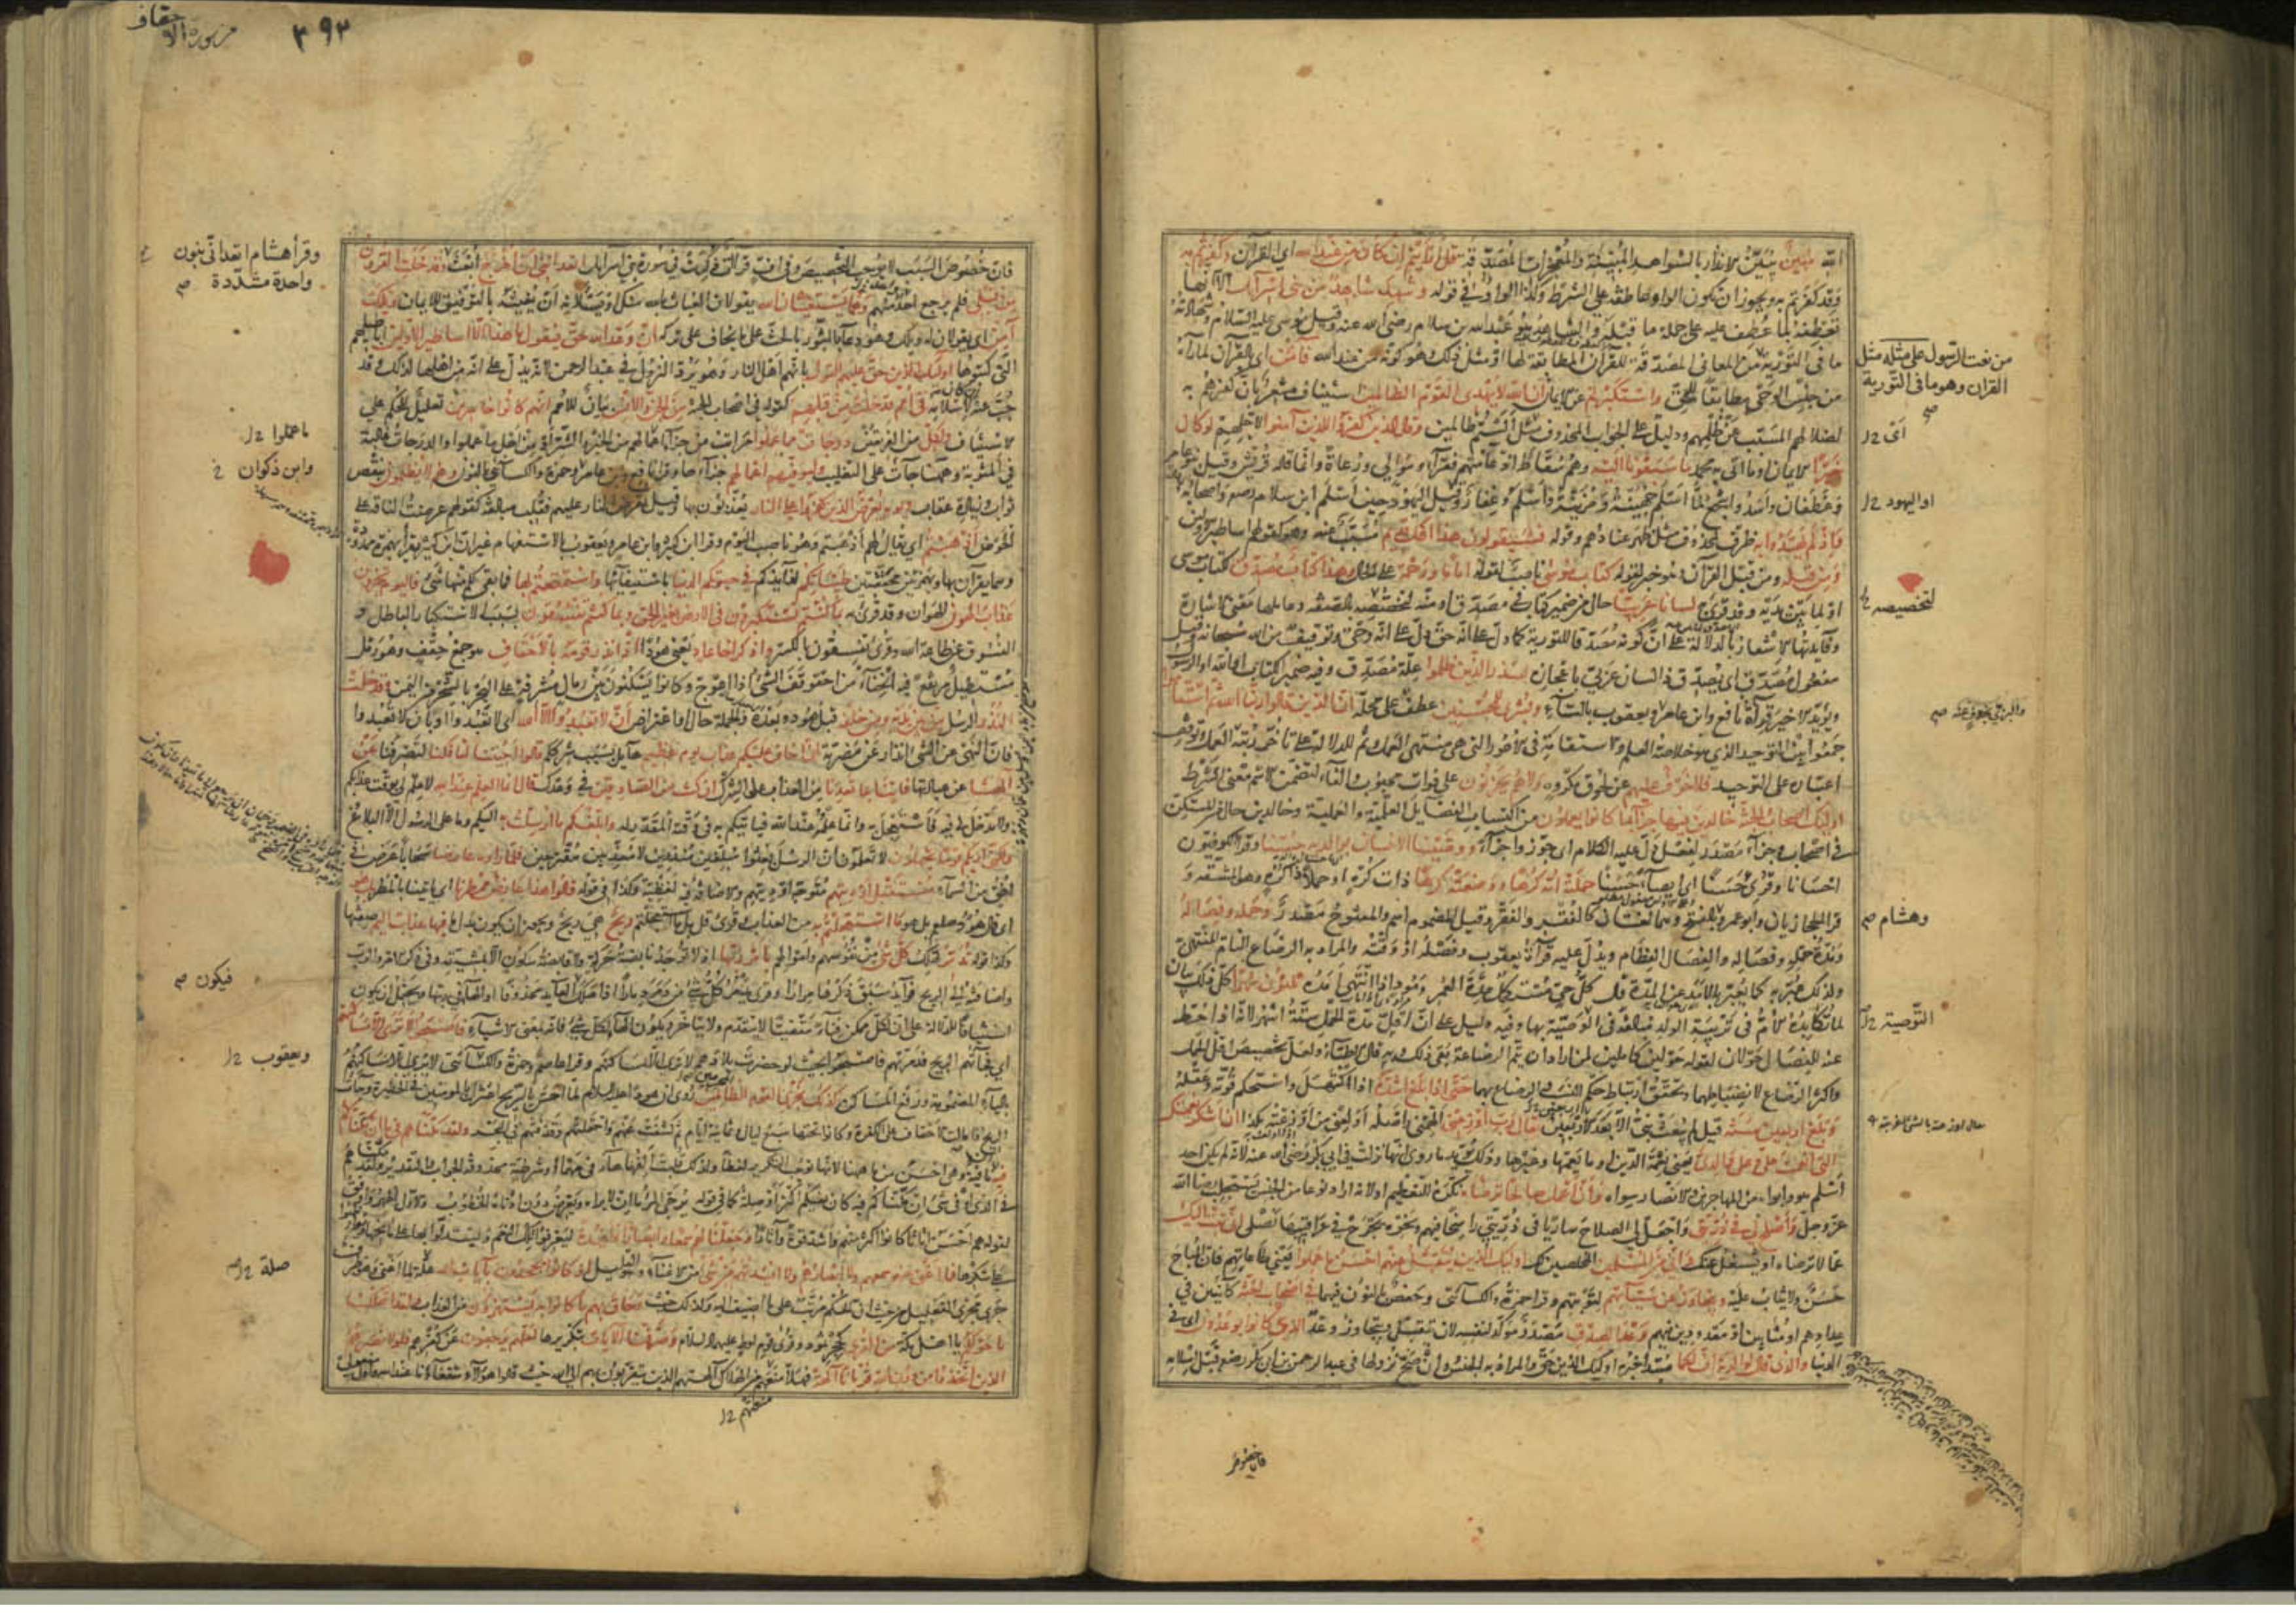 الله مبين يبين الانذار بالشواهد المبينة والمعجزات المصدقة قل أرأيتم إن كان من عند الله اي القرآن وكفرتم به
وقد كفرتم به ويجوز ان تكون الواو عاطفة على الشرط وكذا الواو في قوله وشهد شاهد من بني إسرائيل الا انها
تعطفه بما عطف عليه على جملة ما قبله والشاهد هو عبد الله بن سلام رضي الله عنه وقيل موسى عليه السلام وشهادته
ما في التورية من المعاني المصدقة للقرآن المطابقة لها او مثل ذلك وهو كونه من عند الله فآمن اي بالقرآن لما رآه
من نعت الرسول على مثله مثل
القران وهو ما في التورية
من جنس الوحي مطابقا للحق واستكبرتم عن الايمان إن الله لا يهدي القوم الظالمين استيناف مشعر بان كفرهم به
لضلالهم المسبب عن ظلمهم ودليل على الجواب المحذوف مثل ألستم ظالمين وقال الذين كفروا للذين آمنوا لاجلهم لو كان
خيرا الايمان او ما اتى به محمد ما سبقونا إليه وهم سقاط اذ عامتهم فقراء وموالي ورعاة وانما قاله قريش وقيل بنو عامر
وغطفان واسد واشجع لما اسلم جهينة ومزينة واسلم وغفار وقيل اليهود حين اسلم ابن سلام واصحابه
او اليهود
وإذ لم يهتدوا به ظرف لمحذوف مثل ظهر عنادهم وقوله فسيقولون هذا إفك قديم مسبب عنه وهو كقولهم اساطير الاولين
ومن قبله ومن قبل القرآن وهو خبر لقوله كتاب موسى ناصب لقوله إماما ورحمة على الحال وهذا كتاب مصدق لكتاب موسى
او لما بين يديه وقد قرئ به لسانا عربيا حال من ضمير كتاب في مصدق او منه لتخصصه بالصفة وعاملها معنى الاشارة
لتخصيصه
وفايدتها الاشعار بالدلالة على ان كونه مصدقا للتورية كما دل على انه حق دل على انه وحي وتوقيف من الله سبحانه وقيل
مفعول مصدق اي يصدق ذا لسان عربي باعجازه لينذر الذين ظلموا علة مصدق وفيه ضمير الكتاب او الله او الرسول
ويؤيد الاخير قرآة نافع وابن عامر ويعقوب بالتاء وبشرى للمحسنين عطف على محله إن الذين قالوا ربنا الله ثم استقاموا
جمعوا بين التوحيد الذي هو خلاصة العلم والاستقامة في الامور التي هي منتهى العمل وثم للدلالة على تأخر رتبة العمل وتوقف
اعتباره على التوحيد فلا خوف عليهم من لحوق مكروه ولا هم يحزنون على فوات محبوب والفاء لتضمن الاسم معنى الشرط
أولئك أصحاب الجنة خالدين فيها جزاء بما كانوا يعملون من اكتساب الفضايل العلمية والعملية وخالدين حال من المستكن
في اصحاب وجزاء مصدر لفعل دل عليه الكلام اي جوزوا جزاء ووصينا الإنسان بوالديه حسنا وقرا الكوفيون
احسانا وقرئ حسنا اي ايصاء حسنا حملته أمه كرها ووضعته كرها ذات كره او حملا ذا كره وهو المشقة و
قرا الحجازيان وابو عمرو بالفتح وهما لغتان كالفقر والفقر وقيل المضموم اسم والمفتوح مصدر وحمله وفصاله
وهشام
ومدة حمله وفصاله والفصال الفطام ويدل عليه قرآة يعقوب وفصله او وقته والمراد به الرضاع التام المنتهي
ولذلك عبر به كما يعبر بالامد عن المدة قال كل حي مستكمل مدة العمر ومود اذا انتهى امده ثلاثون شهرا كل ذلك بيان
لما تكابده الام في تربية الولد مبالغة في الوصية بها وفيه دليل على ان اقل مدة الحمل ستة اشهر لانه اذا حط
التوصية
عنه للفصال حولان لقوله حولين كاملين لمن اراد ان يتم الرضاعة بقي ذلك وبه قال الاطباء ولعل تخصيص اقل الحمل
واكثر الرضاع لانضباطهما وتحقق ارتباط حكم النسب والرضاع بهما حتى إذا بلغ أشده اذا اكتهل واستحكم قوته وعقله
وبلغ أربعين سنة قيل لم يبعث نبي الا بعد الاربعين قال رب أوزعني الهمني واصله اولعني من اوزعته بكذا أن أشكر نعمتك
التي أنعمت علي وعلى والدي يعني نعمة الدين او ما يعمها وغيرها وذلك يؤيد ما روي انها نزلت في ابي بكر رضي الله عنه لانه لم يكن احد
اسلم هو وابواه من المهاجرين والانصار سواه وأن أعمل صالحا ترضاه نكرة للتعظيم او لانه اراد نوعا من الجنس يستجلب رضا الله
عز وجل وأصلح لي في ذريتي واجعل لي الصلاح ساريا في ذريتي راسخا فيهم ونحوه يجرح في عراقيبها نصلي إني تبت إليك
عما لا ترضاه او يشغل عنك وإني من المسلمين المخلصين لك أولئك الذين يتقبل عنهم أحسن ما عملوا يعني طاعاتهم فان المباح
حسن ولا يثاب عليه ويتجاوز عن سيئاتهم لتوبتهم وقرا حمزة والكسائي وحفص بالنون فيهما في أصحاب الجنة كائنين في
عدادهم او مثابين او معدودين فيهم وعد الصدق مصدر مؤكد لنفسه لان تتقبل ونتجاوز وعد الذي كانوا يوعدون اي في
الدنيا والذي قال لوالديه أف لكما مبتدا خبره اولئك الذين حق والمراد به الجنس وان صح نزولها في عبد الرحمن بن ابي بكر رضي قبل اسلامه
فان خصوص
من سورة الاحقاف
٣٩٣
فان خصوص السبب لا يوجب التخصيص وفي اف قرآات ذكرت في سورة بني اسرائيل أتعدانني أن أخرج ابعث وقد خلت القرون
وقرأ هشام اتعداني بنون
واحدة مشددة
من قبلي فلم يرجع احد منهم وهما يستغيثان الله يقولان الغياث بالله منك او يسئلانه ان يغيثه بالتوفيق للايمان ويلك
آمن اي يقولان له ويلك وهو دعاء بالثبور بالحث على ما يخاف على تركه إن وعد الله حق فيقول ما هذا إلا أساطير الأولين اباطيلهم
التي كتبوها أولئك الذين حق عليهم القول بانهم اهل النار وهو يرد النزول في عبد الرحمن لانه يدل على انه من اهلها لذلك وقد
جب عنه لاسلامه في أمم قد خلت من قبلهم كقوله في اصحاب الجنة من الجن والإنس بيان للامم إنهم كانوا خاسرين تعليل للحكم على
الاستيناف ولكل من الفريقين درجات مما عملوا مراتب من جزاء ما عملوا من الخير والشر او من اجل ما عملوا والدرجات غالبة
ما عملوا
في المثوبة وههنا جاءت على التغليب وليوفيهم أعمالهم جزاءها وقرا نافع وابن عامر وحمزة والكسائي بالنون وهم لا يظلمون بنقص
وابن ذكوان
ثواب وزيادة عقاب ويوم يعرض الذين كفروا على النار يعذبون بها وقيل تعرض النار عليهم فقلب مبالغة كقولهم عرضت الناقة على
الحوض أذهبتم اي يقال لهم اذهبتم وهو ناصب اليوم وقرا ابن كثير وابن عامر ويعقوب بالاستفهام غير ان ابن كثير يقرأ بهمزة ممدودة
وهما يقرآن بها وبهمزتين محققتين طيباتكم لذائذكم في حياتكم الدنيا باستيفائها واستمتعتم بها فما بقي لكم منها شيء فاليوم تجزون
عذاب الهون الهوان وقد قرئ به بما كنتم تستكبرون في الأرض بغير الحق وبما كنتم تفسقون بسبب الاستكبار الباطل و
الفسوق عن طاعة الله وقرئ تفسقون بالكسر واذكر أخا عاد يعني هودا إذ أنذر قومه بالأحقاف هو جمع حقف وهو رمل
مستطيل مرتفع فيه انحناء من احقوقف الشيء اذا اعوج وكانوا يسكنون بين رمال مشرفة على البحر بالشحر من اليمن وقد خلت
النذر الرسل من بين يديه ومن خلفه قبل هود وبعده والجملة حال او اعتراض ألا تعبدوا إلا الله اي لا تعبدوا او بان لا تعبدوا
فان النهي عن الشيء انذار عن مضرته إني أخاف عليكم عذاب يوم عظيم هائل بسبب شرككم قالوا أجئتنا لتأفكنا لتصرفنا عن
آلهتنا عن عبادتها فأتنا بما تعدنا من العذاب على الشرك إن كنت من الصادقين في وعدك قال إنما العلم عند الله لا علم لي بوقت عذابكم
ولا مدخل لي فيه فاستعجل به وانما علمه عند الله فياتيكم به في وقته المقدر له وأبلغكم ما أرسلت به اليكم وما على الرسول الا البلاغ
ولكني أراكم قوما تجهلون لا تعلمون ان الرسل بعثوا مبلغين منذرين لا معذبين مقترحين فلما رأوه عارضا سحابا عرض في
افق من السماء مستقبل أوديتهم متوجه اوديتهم والاضافة فيه لفظية وكذا في قوله قالوا هذا عارض ممطرنا اي ياتينا بالمطر بل هو
اي قال هود صلعم بل هو ما استعجلتم به من العذاب وقرئ قل بل ما استعجلتم ريح هي ريح ويجوز ان يكون بدل ما فيها عذاب أليم صفتها
وكذا قوله تدمر تهلك كل شيء من نفوسهم واموالهم بأمر ربها اذ لا توجد نابضة حركة ولا قابضة سكون الا بمشيته وفي ذكر الامر والرب
واضافته الى الريح فوائد سبق ذكرها مرارا وقرئ يدمر كل شيء من دمر دمارا اذا هلك فيكون العايد محذوفا او الهاء في ربها ويحتمل ان يكون
فيكون
استينافا للدلالة على ان لكل ممكن فناء مقضيا لا يتقدم ولا يتاخر ويكون الهاء لكل شيء فانه بمعنى الاشياء فأصبحوا لا ترى إلا مساكنهم
اي فجاءتهم الريح فدمرتهم فاصبحوا بحيث لو حضرت بلادهم لا ترى الا مساكنهم وقرا عاصم وحمزة والكسائي لا يرى الا مساكنهم
ويعقوب
بالياء المضمومة ورفع المساكن كذلك نجزي القوم المجرمين روي ان هودا عليه السلام لما احس بالريح اعتزل بالمؤمنين في الحظيرة وجاءت
الريح فامالت الاحقاف على الكفرة وكانوا تحتها سبع ليال وثمانية ايام ثم كشفت عنهم واحتملتهم وقذفتهم في البحر ولقد مكناهم فيما إن مكناكم
فيه ان نافية وهي احسن من ما ههنا لانها توجب التكرير لفظا ولذلك قلبت الفها هاء في مهما او شرطية محذوفة الجواب والتقدير ولقد مكناهم
في الذي او في شيء ان مكناكم فيه كان بغيكم اكثر او صلة كما في قوله يرجي المرء ما ان لا يراه ويعرض دون ادناه الخطوب والاول اظهر واوفق
لقوله هم احسن اثاثا كانوا اكثر منهم واشد قوة وآثارا وجعلنا لهم سمعا وأبصارا وأفئدة ليعرفوا تلك النعم ويستدلوا بها على مانحها ويواظبوا
على شكرها فما أغنى عنهم سمعهم ولا أبصارهم ولا أفئدتهم من شيء من الاغناء وهو القليل إذ كانوا يجحدون بآيات الله صلة لما اغنى وهو ظرف
صلة
جرى مجرى التعليل من حيث ان الحكم مرتب على ما اضيف اليه وكذلك حيث وحاق بهم ما كانوا به يستهزئون من العذاب ولقد أهلكنا
ما حولكم يا اهل مكة من القرى كحجر ثمود وقرى قوم لوط عليهم السلام وصرفنا الآيات بتكريرها لعلهم يرجعون عن كفرهم فلولا نصرهم
الذين اتخذوا من دون الله قربانا آلهة فهلا منعهم من الهلاك آلهتهم الذين يتقربون بهم الى الله حيث قالوا هؤلاء شفعاؤنا عند الله واول مفعولي
منعتهم